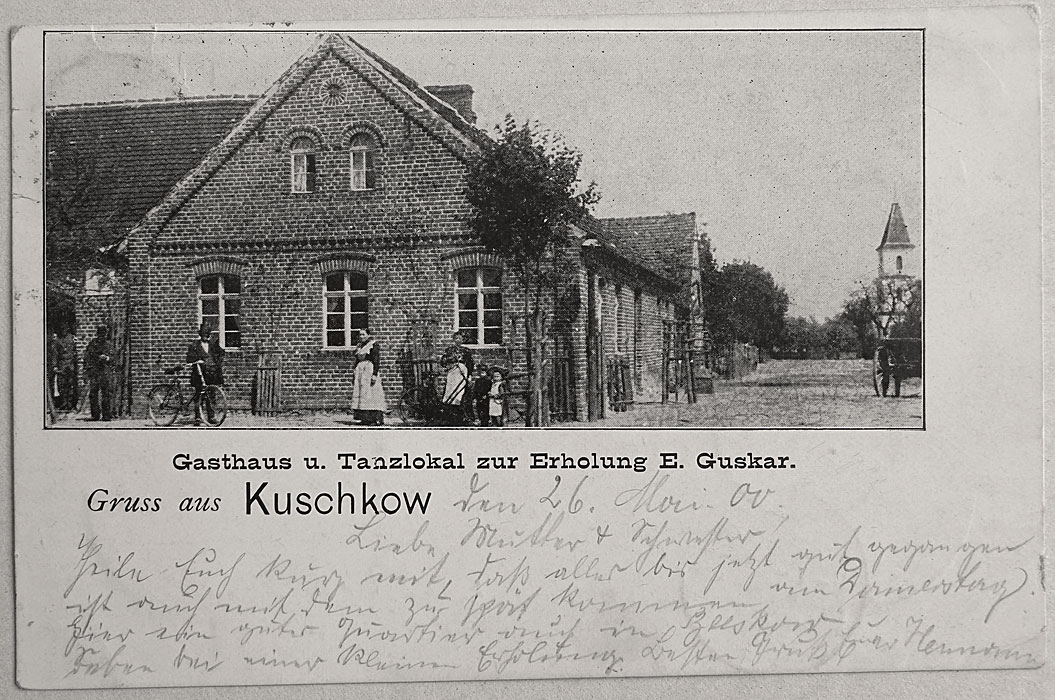 Gasthaus u. Tanzlokal zur Erholung E. Guskar.
Gruss aus Kuschkow den 26. Mai. 00.
Liebe Mutter & Schwester
Theile Euch kurz mit, daß alles bis jetzt gut gegangen
ist auch mit dem zu spät kommen am Donnerstag).
Hier ein gutes Quartier auch in Beeskow
bei einer kleinen Erholung. Besten Gruß Euer Hermann